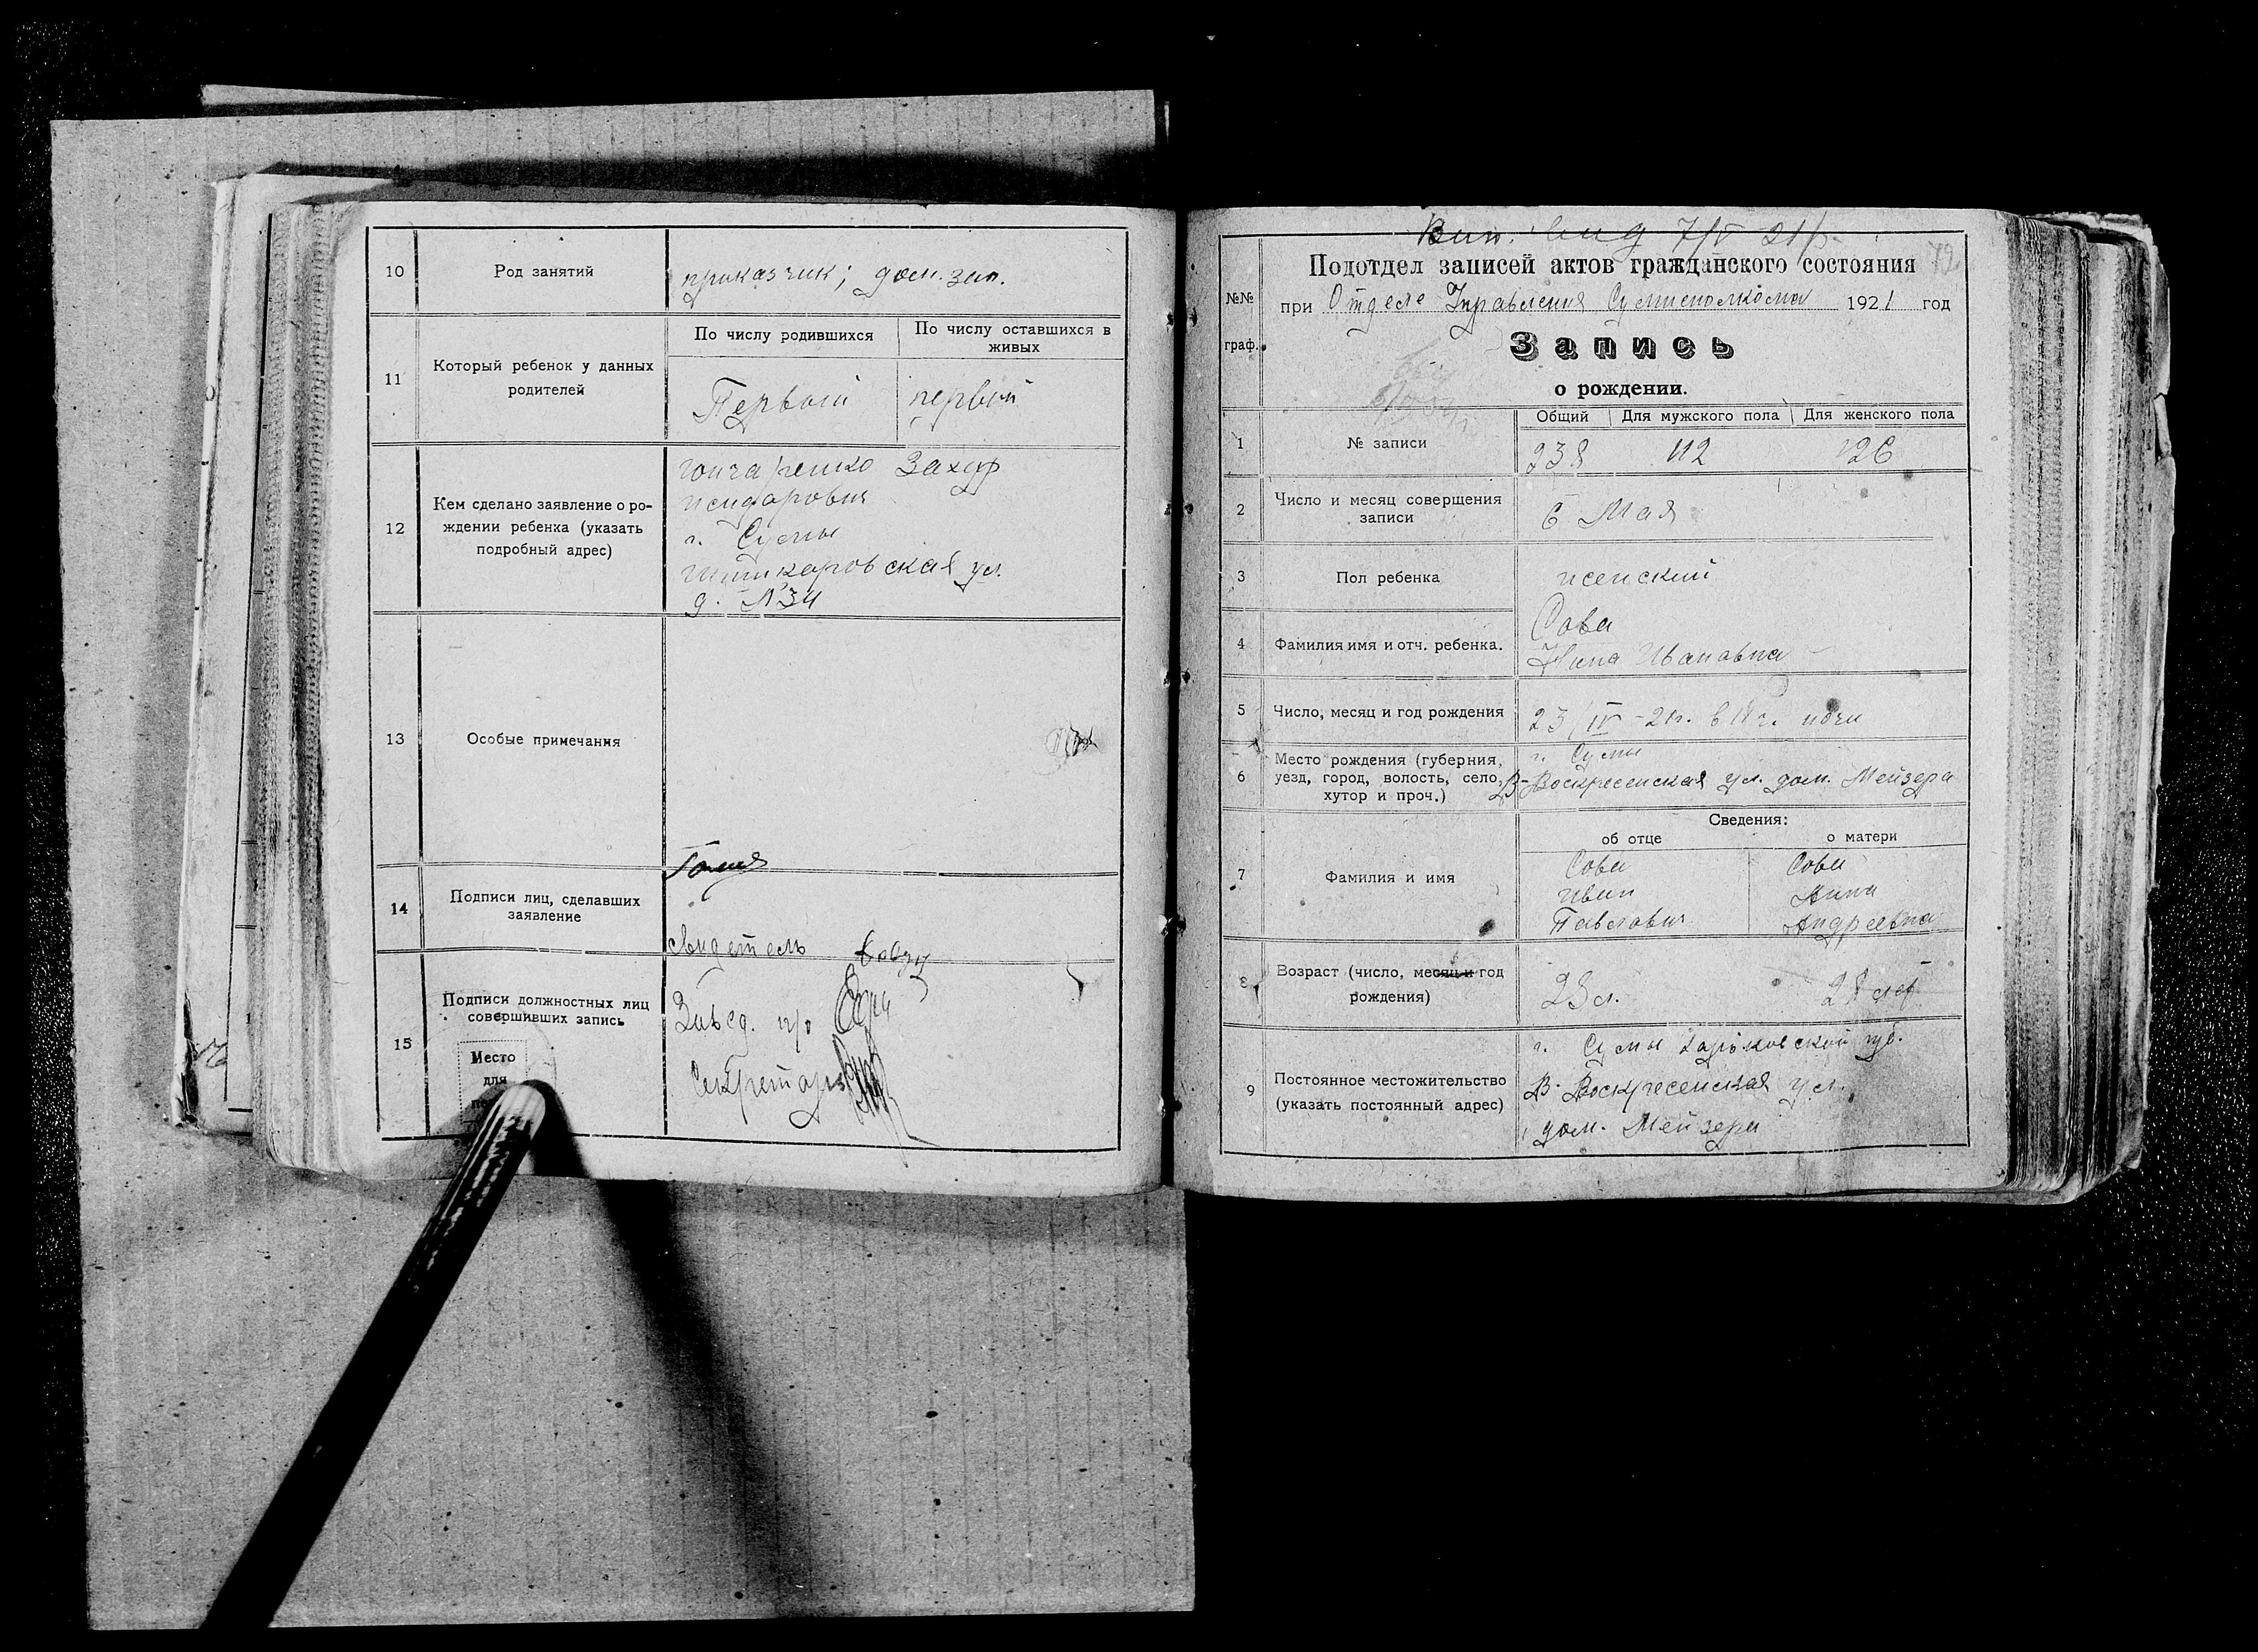 10
Род занятий
приказчик; дом. зан.
11
Который ребенок у данных
родителей
По числу родившихся
По числу оставшихся в
живых
Первый
первый
12
Кем сделано заявление о ро-
ждении ребенка (указать
подробный адрес)
гончаренко Захар
исидорович
г. Сумы
ул.
д. №34
13
Особые примечания
14
Подписи лиц, сделавших
заявление
свидетель
15
Подписи должностных лиц
совершивших запись
Место
для
Завед. п/о
Секретарь
7/V 21
№№
граф.
Подотдел записей актов гражданского состояния
при Отделе Управления Сумисполкома 1921 год
Запись
о рождении.
1
№ записи
Общий
Для мужского пола
Для женского пола
238
112
126
2
Число и месяц совершения
записи
6 Мая
3
Пол ребенка
женский
4
Фамилия имя и отч. ребенка.
Сова
Нина Ивановна
5
Число, месяц и год рождения
23/IV-21г. в 11 ч. ночи
6
Место рождения (губерния,
уезд, город, волость, село,
хутор и проч.)
г. Сумы
В-Воскресенская ул. дом. Мейзера
7
Фамилия и имя
Сведения:
об отце
о матери
Сова
Иван
Павлович
Сова
Анна
Андреевна
8
Возраст (число, месяц и год
рождения)
23 л.
28 лет
9
Постоянное местожительство
(указать постоянный адрес)
г. Сумы Харьковской губ.
В. Воскресенская ул.
дом. Мейзера